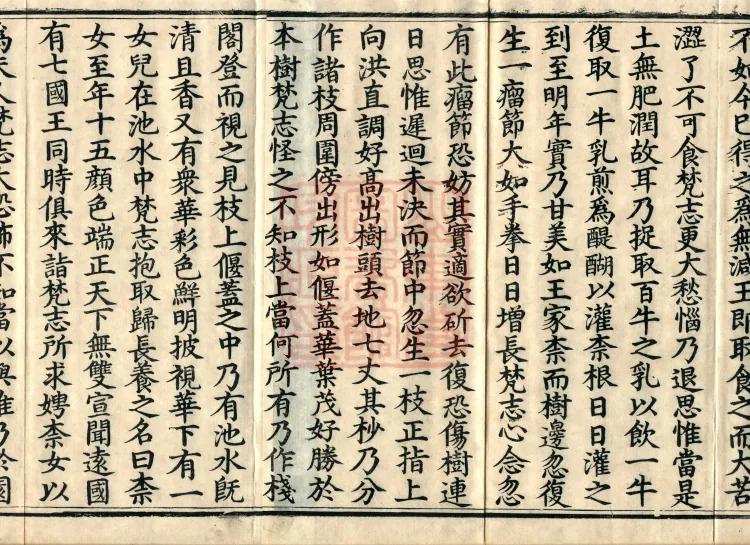 不如今已得之爲無減王即取食之而大苦
澀了不可食梵志更大愁惱乃退思惟當是
土無肥潤故耳乃捉取百牛之乳以飲一牛
復取一牛乳煎爲醍醐以灌柰根日日灌之
到至明年實乃甘美如王家柰而樹邊忽復
生一瘤節大如手拳日日增長梵志心念忽
有此瘤節恐妨其實適欲斫去復恐傷樹連
日思惟遲迴未決而節中忽生一枝正指上
向洪直調好高出樹頭去地七丈其杪乃分
作諸枝周圍傍出形如偃蓋華葉茂好勝於
本樹梵志怪之不知枝上當何所有乃作棧
閣登而視之見枝上偃蓋之中乃有池水旣
清且香又有衆華彩色鮮明披視華下有一
女兒在池水中梵志抱取歸長養之名曰柰
女至年十五顏色端正天下無雙宣聞遠國
有七國王同時俱來詣梵志所求娉柰女以
爲夫人梵志大恐怖不知當以與誰乃於園